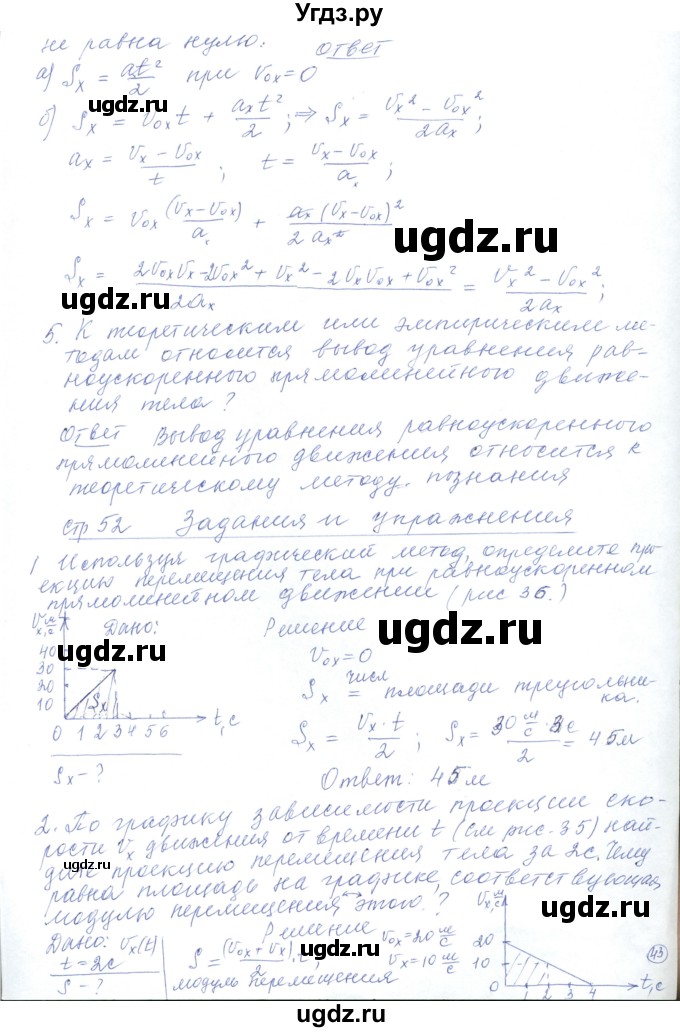 Угдз.ру
не равна нулю.
Ответ
а) Sₓ = aₓt²/2 при v₀ₓ=0
б) Sₓ = v₀ₓt + aₓt²/2; ⇒ Sₓ = (vₓ² - v₀ₓ²)/2aₓ;
aₓ = (vₓ - v₀ₓ)/t; t = (vₓ - v₀ₓ)/aₓ;
Sₓ = v₀ₓ (vₓ-v₀ₓ)/aₓ + aₓ(vₓ-v₀ₓ)²/2aₓ²
Sₓ = (2v₀ₓvₓ - 2v₀ₓ² + vₓ² - 2vₓv₀ₓ + v₀ₓ²)/2aₓ = (vₓ² - v₀ₓ²)/2aₓ;
5. К теоретическим или эмпирическим ме-
тодам относится вывод уравнения рав-
ноускоренного прямолинейного движе-
ния тела?
Ответ Вывод уравнения равноускоренного
прямолинейного движения относится к
теоретическому методу познания
стр 52 Задания и упражнения
1 Используя графический метод, определите про-
екцию перемещения тела при равноускоренном
прямолинейном движении (рис 36.)
Дано: Решение
vₓ, м/с
40
30
20
10
0 1 2 3 4 5 6 t, с
Sₓ
Sₓ - ?
v₀ₓ = 0
Sₓ числ = площади треугольни-
ка.
Sₓ = vₓ · t/2; Sₓ = 30 м/с · 3с/2 = 45м
Ответ: 45м
2. По графику зависимости проекции ско-
рости vₓ движения от времени t (см рис. 35) най-
дите проекцию перемещения тела за 2с. Чему
равна площадь на графике, соответствующая
модулю перемещения этого?
Дано: vₓ(t)
t = 2с
S - ?
Решение
S = (v₀ₓ + vₓ)/2 · t;
модуль перемещения
v₀ₓ = 20 м/с
vₓ = 10 м/с
vₓ, м/с
20
10
0 1 2 3 4 t, с
43
ugdz.ru
ugdz.ru
ugdz.ru
ugdz.ru
ugdz.ru
ugdz.ru
ugdz.ru
ugdz.ru
ugdz.ru
ugdz.ru